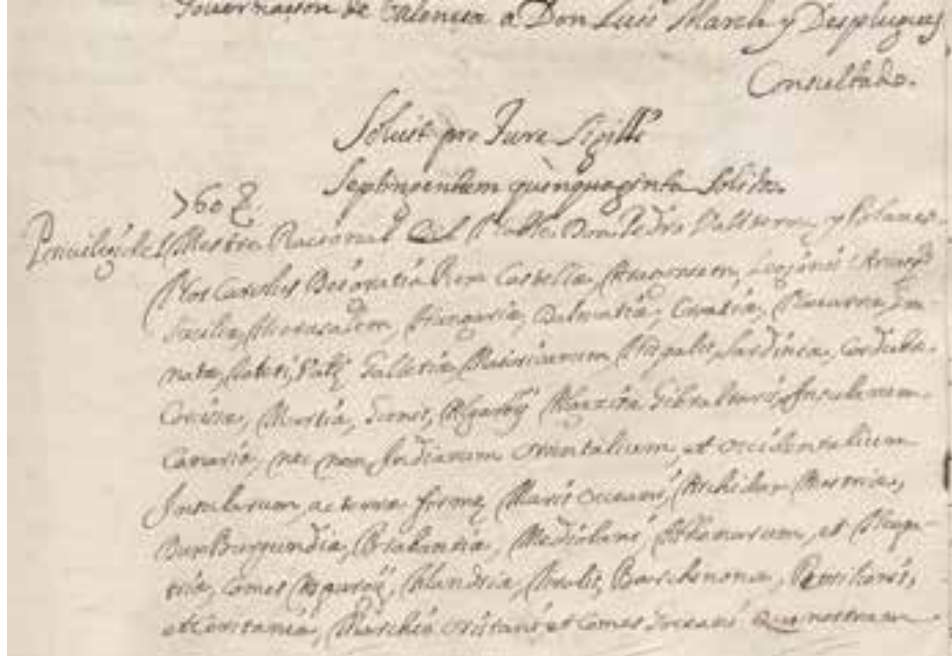 Governacion de Valencia a Don Luis March y Despluguez
Consultado.
Solvit pro Jure Sigilli
Septingentum quinquaginta Solidos
760
Racional Don Pedro Valterra y
Nos Carolus Dei gratia Rex Castellæ, Aragonum, Legionis
Siciliæ, Hierusalem, Hungariæ, Dalmatiæ, Croatiæ, Navarræ,
Toleti, Galletiæ, Maioricarum, Sardiniæ, Cordubæ
Corsicæ, Murtiæ, Algarbij Gibraltaris, Insularum
Canariæ, nec non Indiarum orientalium, et occidentalium
Insularum, ac terræ firmæ, Maris Occeani, Archidux Austriæ,
Dux Burgundiæ, Brabantiæ, Mediolani, Athenarum, et Neopa-
triæ, Comes Flandriæ, Tirolis, Barchinonæ, Rossilionis,
et Ceritaniæ, Marchio Oristani et Comes Goceani